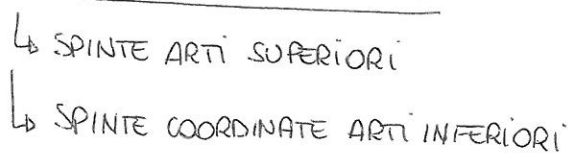 ↳ SPINTE ARTI SUPERIORI
↳ SPINTE COORDINATE ARTI INFERIORI